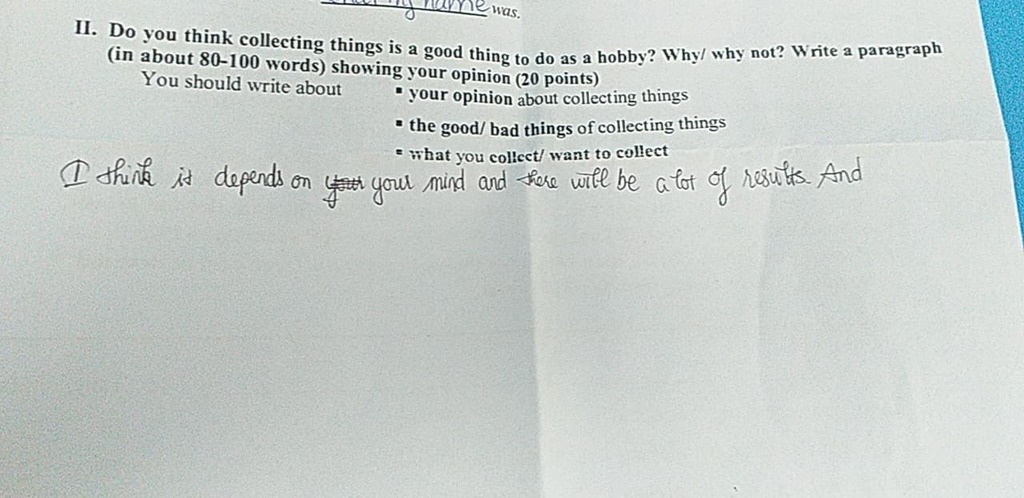 name was.
II. Do you think collecting things is a good thing to do as a hobby? Why/ why not? Write a paragraph
(in about 80-100 words) showing your opinion (20 points)
You should write about ▪ your opinion about collecting things
▪ the good/ bad things of collecting things
▪ what you collect/ want to collect
I think it depends on your your mind and there will be a lot of results. And